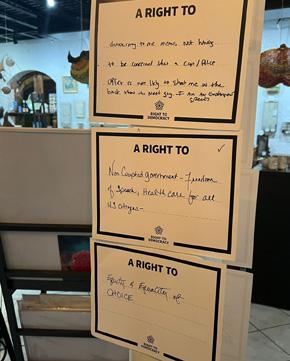 A RIGHT TO
democracy to me means not having
to be concerned that a Cop / Police
officer is not likely to shoot me in the
back than the next guy. I am an
RIGHT TO
DEMOCRACY
A RIGHT TO
Non Corrupted government - Freedom
of Speech, Health care for all
US citizens -
RIGHT TO
DEMOCRACY
A RIGHT TO
Equity & Equality of
CHOICE
RIGHT TO
DEMOCRACY